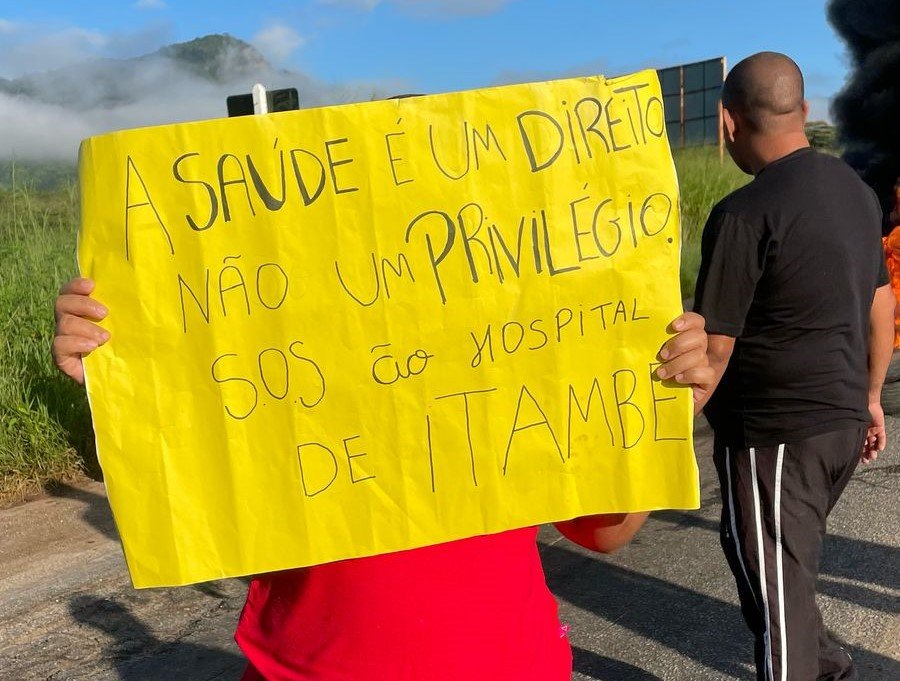 A SAÚDE É UM DIREITO
NÃO UM PRIVILÉGIO!
S.O.S ão HOSPITAL
DE ITAMBÉ